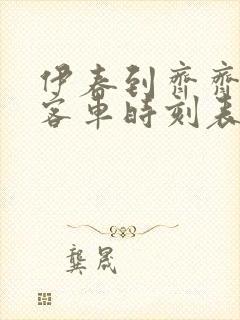 伊春到齊齊
客車時刻表
龔晟